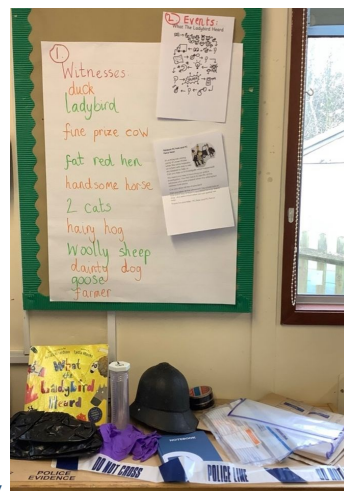 1
Witnesses
duck
ladybird
fine prize cow
fat red hen
handsome horse
2 cats
hairy hog
Woolly sheep
dainty dog
goose
farmer
2 Events:
What The Ladybird Heard
What
the
Ladybird
Heard
NOTEBOOK
POLICE
EVIDENCE
DO NOT CROSS
POLICE LINE
DO NO